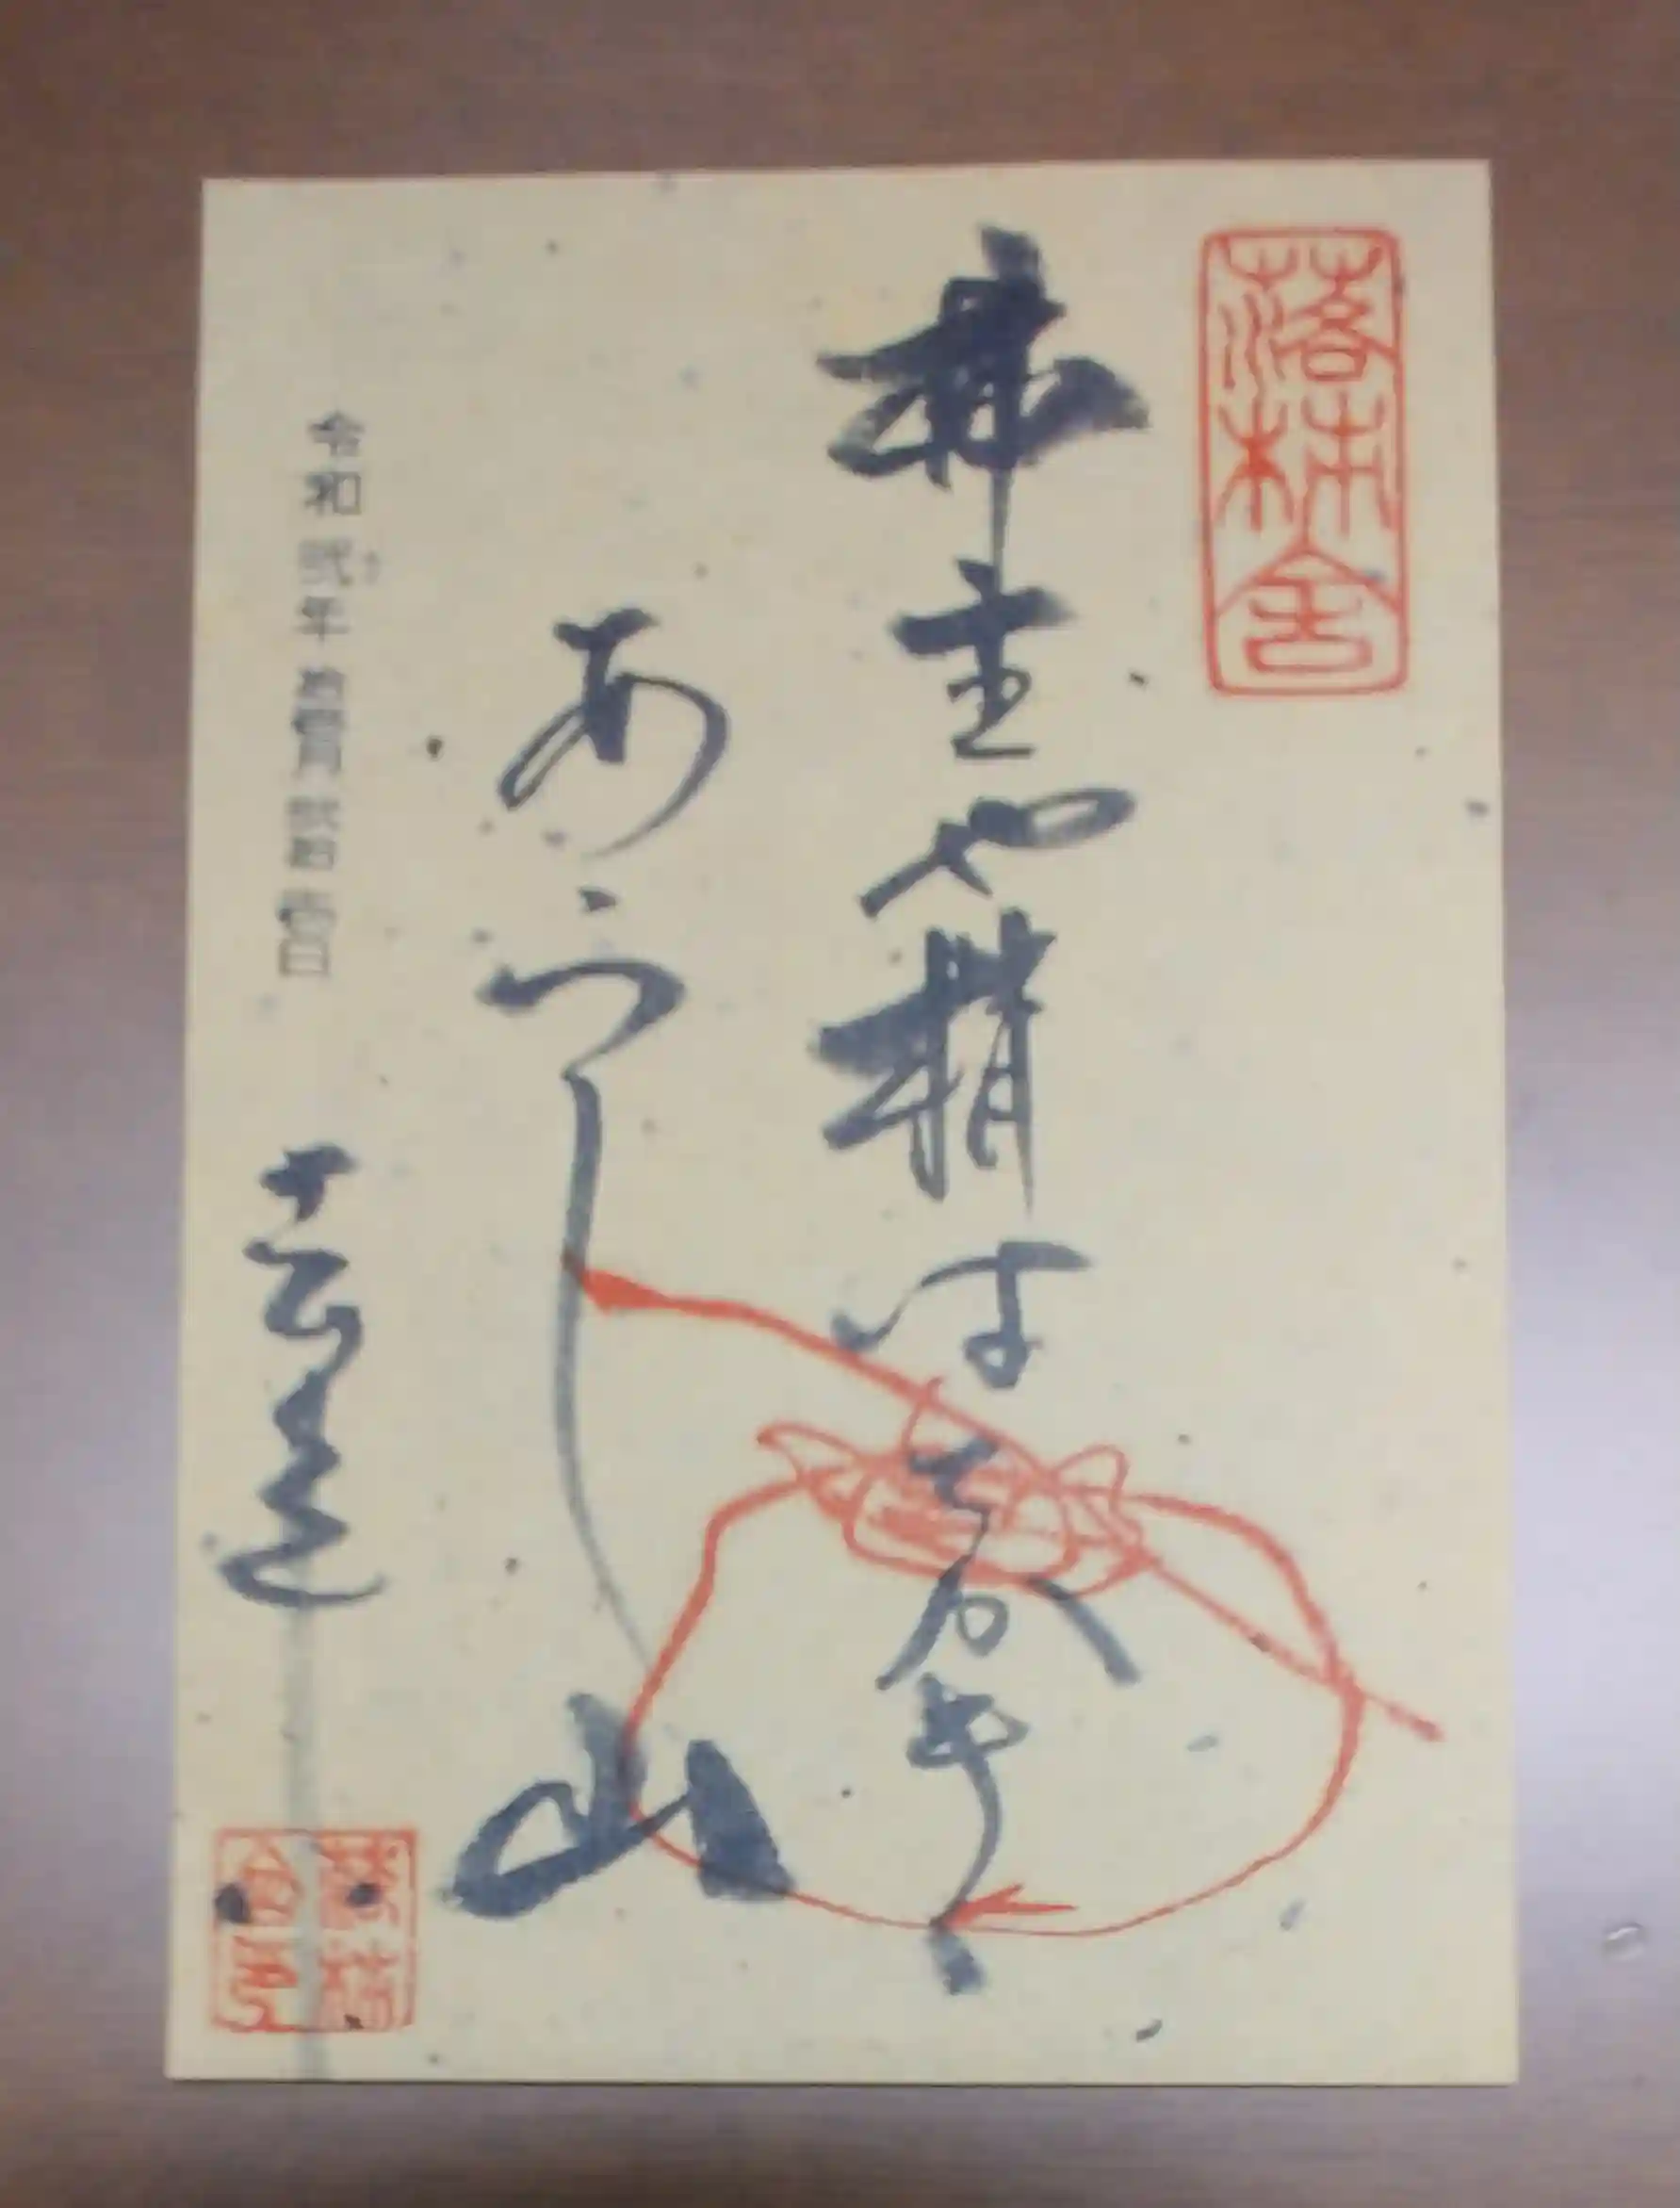 落柿舎
柿主や梢は
ちかき
あらし山
去来
令和弐年拾壹月弐拾壹日